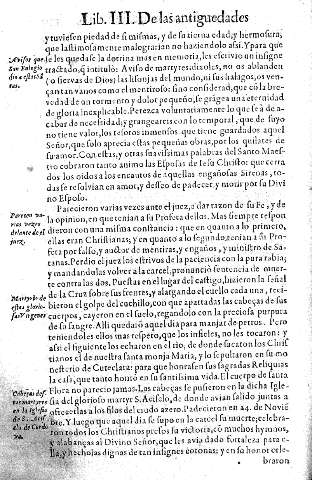 Lib. III. De las antiguedades
y tuviesen piedad de si mismas, y de su tierna edad, y hermosura,
que lastimosamente malograrian no haziendolo assi. Y para que
Avisos que
San Eulogio
dio a estas
se les quedase la dotrina mas en memoria, les escrivio un insigne
tractado, q intitulò: Aviso de martyres: dizeles, no os ablanden
(o siervas de Dios) las lisonjas del mundo, ni sus halagos, os
çantan vanos como el mentiroso: sino considerad, que cõ la bre-
vedad de un tormento y dolor pequeño, se grãgea una eternidad
de gloria inexplicable. Perezca voluntariamente lo que se à de a-
cabar de necessidad: y grangeareis con lo temporal, que de suyo
no tiene valor, los tesoros inmensos que tiene guardados aquel
Señor, que solo aprecia estas pequeñas obras, por los quilates de
su amor. Con estas, y otras suavissimas palabras del Santo Maes-
tro cobraron tanto animo las Esposas de Iesu Christo: que cerra
dos los oidos a los encantos de aquellas engañosas Sirenas, to-
das se resolvian en amor, y deseo de padecer, y morir por su Divi
no Esposo.
Parecen va
rias vezes
delante de el
juez.
Parecieron varias vezes ante el juez, a dar razon de su Fe, y de
la opinion, en que tenian a su Profeta dellos. Mas siempre respon
dieron con una misma constancia: que en quanto a lo primero,
ellas eran Christianas; y en quanto a lo segundo, tenian a su Pro-
feta por falso, y author de mentiras, y engaños, y ministro de Sa-
tanas. Perdio el juez los estrivos de la paciencia con la pura rabia;
y mandandolas volver a la carcel, pronunciò sentencia de muer-
te contra las dos. Puestas en el lugar del castigo, hizieron la señal
Martyrio de
estas glorio-
sas Virgenes
de la Cruz sobre sus frentes, y alargando el cuello cada una, reci-
bieron el golpe del cuchillo, con que apartadas las cabeças de sus
cuerpos, cayeron en el suelo, regandolo con la preciosa purpura
de su sangre. Alli quedarõ aquel dia para manjar de perros. Pero
teniendoles ellos mas respeto, que los infieles, no les tocaron: y
assi el siguiente los echaron en el rio, de donde sacaron los Chris-
tianos el de nuestra santa monja Maria, y lo sepultaron en su mo
nesterio de Cuteclara: para que honrasen sus sagradas Reliquias
la casa, que tanto honrò en su santissima vida. El cuerpo de santa
Cabeças des
tas martyres
en la Iglesia
de S. Acisclo
de Cordova.
Flora no parecio jamas. Las cabeças se pusieron en la dicha Igle-
sia del glorioso martyr S. Acisclo, de donde avian salido juntas a
ofrecerlas a los filos del crudo azero. Padecieron en 24. de Noviẽ
bre. Y luego que aquel dia se supo en la carcel su muerte; celebra-
ron todos los Christianos presos su victoria, cõ muchos hymnos,
y alabanças al Divino Señor, que les avia dado fortaleza para e-
lla, y hechojas dignas de tan insignes coronas; y en su honor cele-
braron